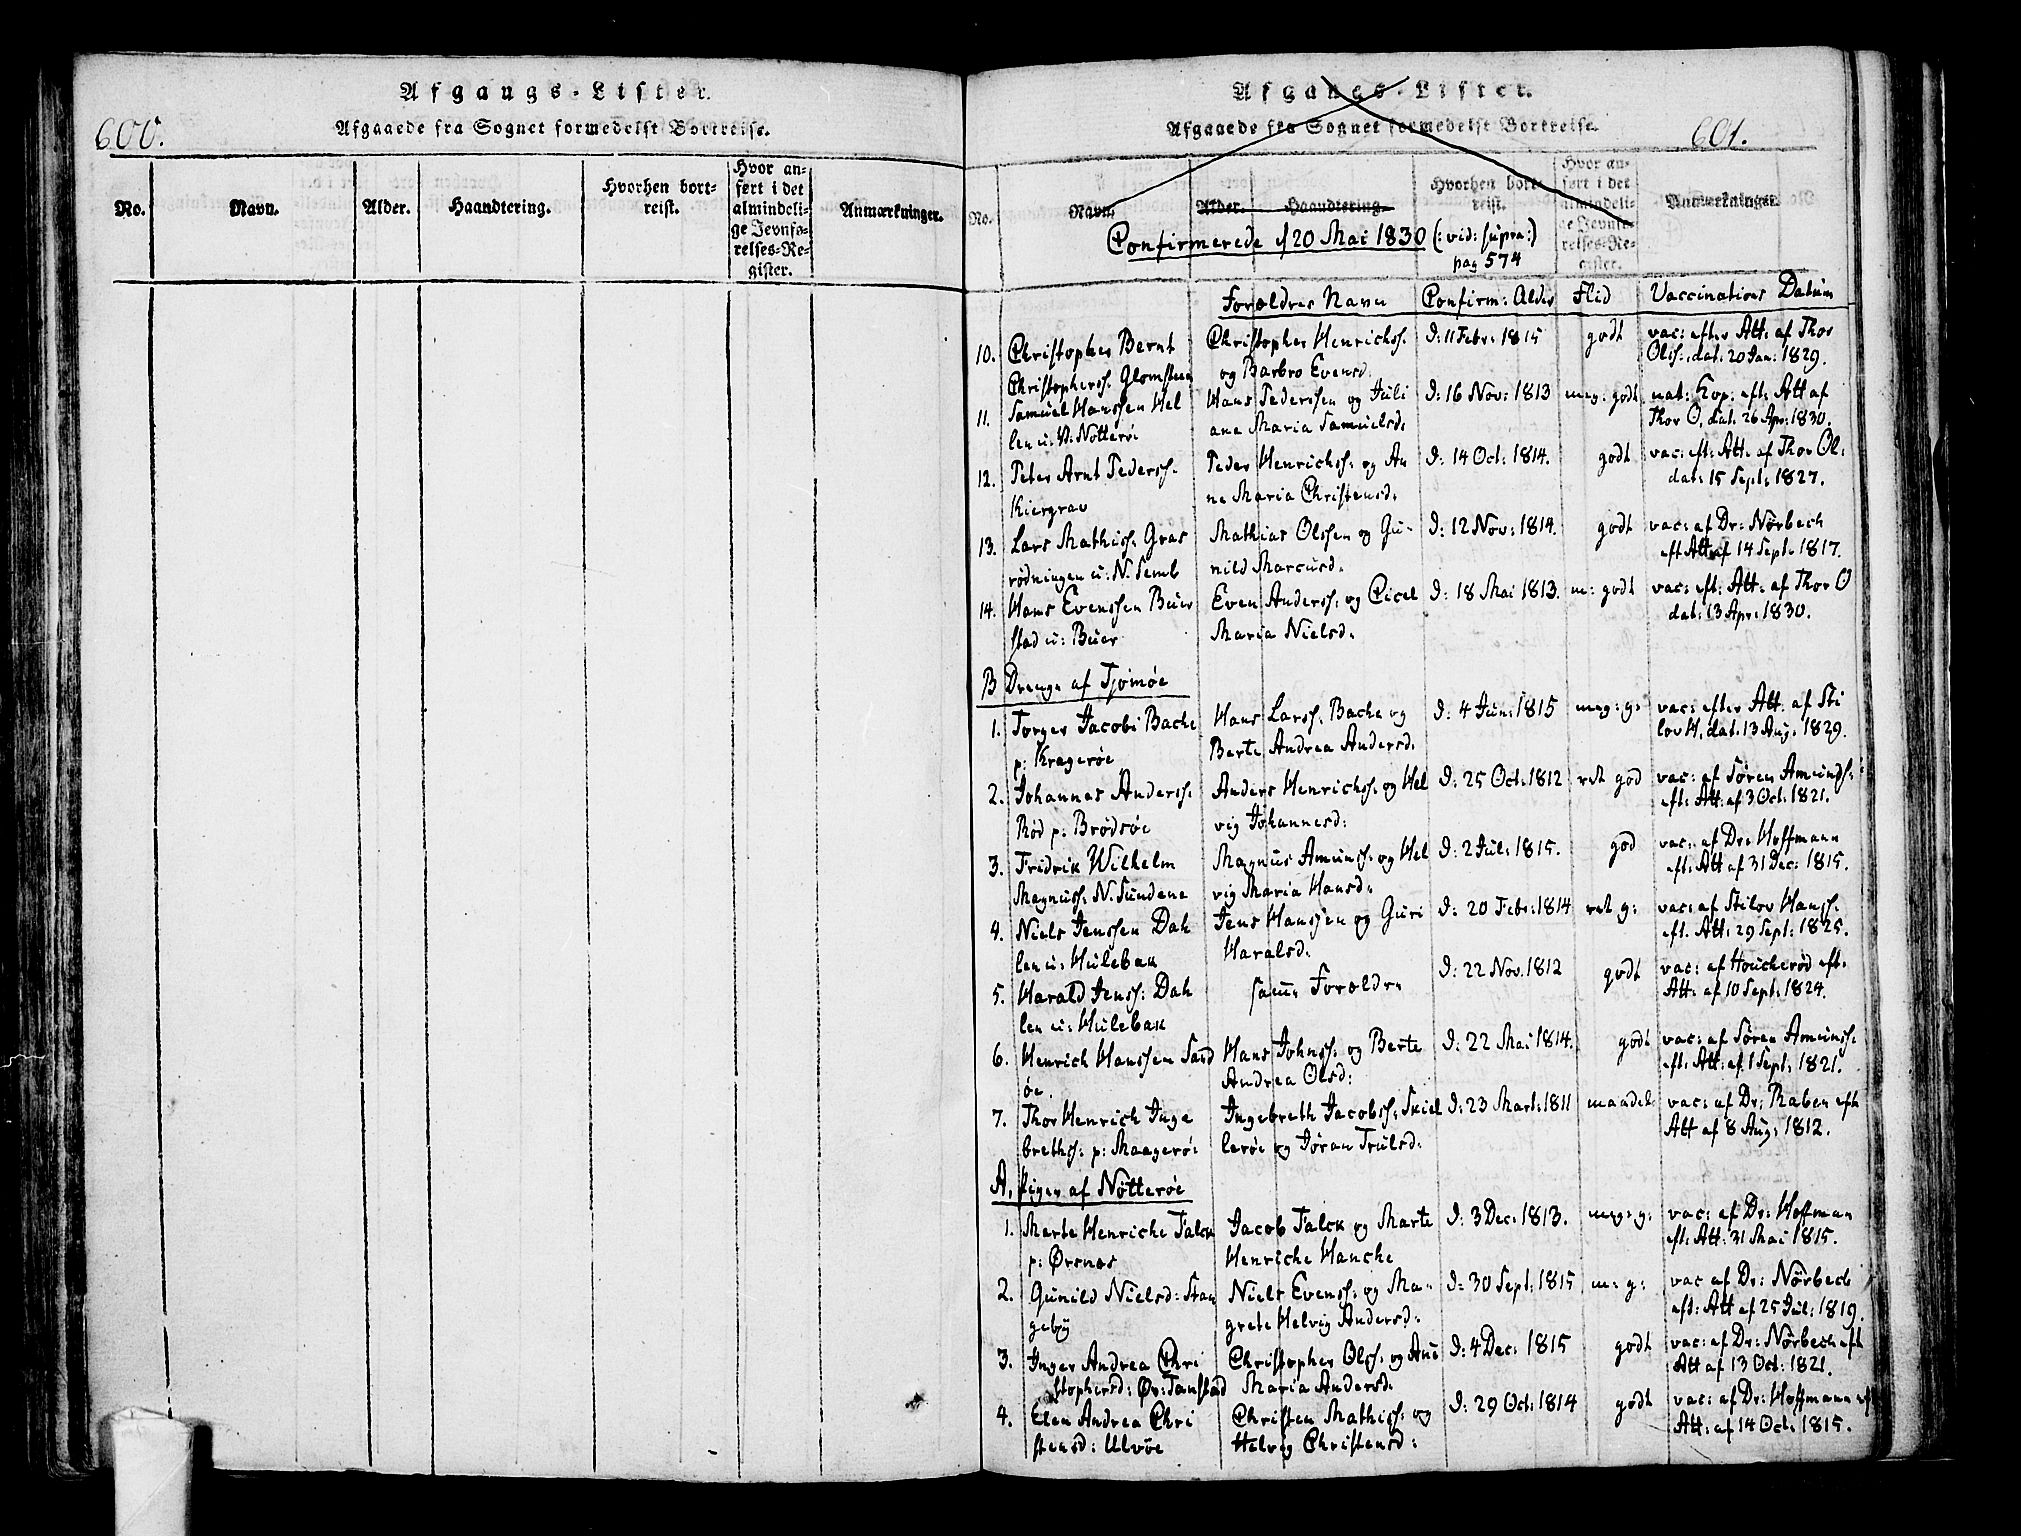 Afgangs-Lister.
600.
Afgaaede fra Sognet formedelst Bortreise.
No.
Navn.
Alder.
Haandtering.
Hvorhen bort-
reist.
Hvor an-
ført i det
almindeli-
ge Jevnfø-
relses-Re-
gister.
Anmærkninger.
Afgangs-Lister.
Afgaaede fra Sognet formedelst Bortreise.
601.
No.
Navn.
Alder.
Haandtering.
Hvorhen bort-
reist.
Hvor an-
ført i det
almindeli-
ge Jevnfø-
relses-Re-
gister.
Anmærkninger.
Confirmerede d 20 Mai 1830 (: vid: supra:)
pag 574
Forældres Navn
Confirm: Alder
Flid
Vaccinations Datum
10. Christopher Bernt
Christophersş: Glomsteen
Christopher Henrichss:
og Barbro Evensd.
d: 11 Febr: 1815
godt
vac: efter Att: af Thor
Olss:, dat: 20 Jan: 1829.
11. Samuel Hanssen Hel
len u: N: Nötteröe
Hans Pederssen og Juli
ane Maria Samuelsd.
d: 16 Nov: 1813
meg: godt
nat: Kop: eft: Att af
Thor O, dat. 26 Apr: 1830.
12. Peter Arnt Pederss:
Kiergrav
Peder Henrichss: og An
ne Maria Christensd.
d: 14 Oct: 1814.
godt
vac: eft: Att: af Thor Ol:
dat: 15 Sept: 1827.
13. Lars Mathiss: Gras
rödningen u: N. Semb
Mathias Olssen og Gu-
nild Marcusd.
d: 12 Nov: 1814.
godt
vac: af Dr: Nörbech
eft Att af 14 Sept: 1817.
14. Hans Evenssen Buer
stad u: Buer
Even Anderss: og Cicel
Maria Nielsd.
d: 18 Mai 1813.
m: godt
vac: eft: Att: af Thor O
dat: 13 Apr: 1830.
B Drenge af Tjømøe
1. Torger Jacobi Bache
p: Kragerøe
Hans Larss: Bache og
Berte Andrea Andersd.
d: 4 Jun: 1815
meg: g:
vac: efter Att: af Sti
lov H, dat. 13 Aug: 1829.
2. Johannes Anderss:
Röd p: Brödsöe
Anders Henrichss: og Hel
vig Johannesd:
d: 25 Oct: 1812
ret god
vac: af Sören Amunds:
eft: Att: af 3 Oct: 1821.
3. Fridrik Wilhelm
Magnuss: N. Sundene
Magnus Amunss: og Hel
vig Maria Hansd.
d: 2 Jul: 1815.
god
vac: af Dr: Hoffmann
eft: Att af 31 Dec: 1815.
4. Niels Jenssen Dah
len u: Hulebak
Jens Hanssen og Guri
Haralsd.
d: 20 Febr: 1814
ret g:
vac: af Stilov Hanss:
eft. Att: 29 Sept: 1825.
5. Harald Jenss: Dah
len u: Hulebak
samme Forældre
d: 22 Nov. 1812
godt
vac: af Houcheröd eft:
Att: af 10 Sept: 1824.
6. Henrich Hanssen Sand
öe.
Hans Johnss: og Berte
Andrea Olsd:
d: 22 Mai 1814.
godt
vac: af Sören Amunss:
eft: Att: af 1 Sept: 1821.
7. Thor Henrich Inge
brethss: p: Maageröe
Ingebreth Jacobss: Skiel
leröe og Jöran Trulsd:
d: 23 Mart: 1811
maadel:
vac: af Dr: Raben eft
Att af 8 Aug: 1812.
A, Piger af Nötteröe
1. Marte Henriche Falck
p: Örsnæs
Jacob Falck og Marte
Henriche Hanche
d: 3 Dec: 1813.
meg: g:
vac: af Dr: Hoffman
eft: Att: 31 Mai 1815.
2. Gunild Nielsd: Stan
geby
Niels Evenss: og Ma-
grete Helvig Andersd:
d: 30 Sept: 1815
m: g:
vac af Dr: Nörbech
eft: Att af 25 Jul: 1819.
3. Inger Andrea Chri
stophersd: Ör: Tanstad
Christopher Olss: og Ane
Maria Andersd.
d: 4 Dec: 1815
godt
vac: af Dr: Nörbech eft
Att af 13 Oct: 1821.
4. Elen Andrea Chri
stensd: Ulvöe
Christen Mathiss: og
Helvig Christensd:
d: 29 Oct: 1814
godt
vac: af Dr: Hoffmann eft
Att: af 14 Oct: 1815.